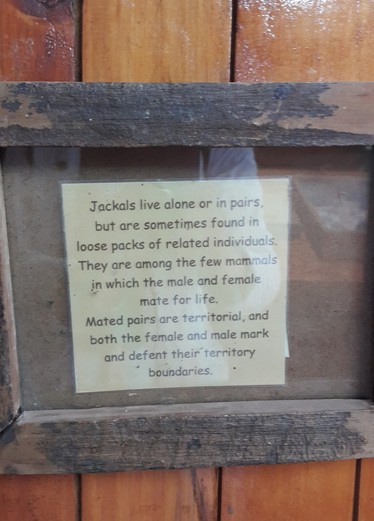 Jackals live alone or in pairs,
but are sometimes found in
loose packs of related individuals.
They are among the few mammals
in which the male and female
mate for life.
Mated pairs are territorial, and
both the female and male mark
and defent their territory
boundaries.